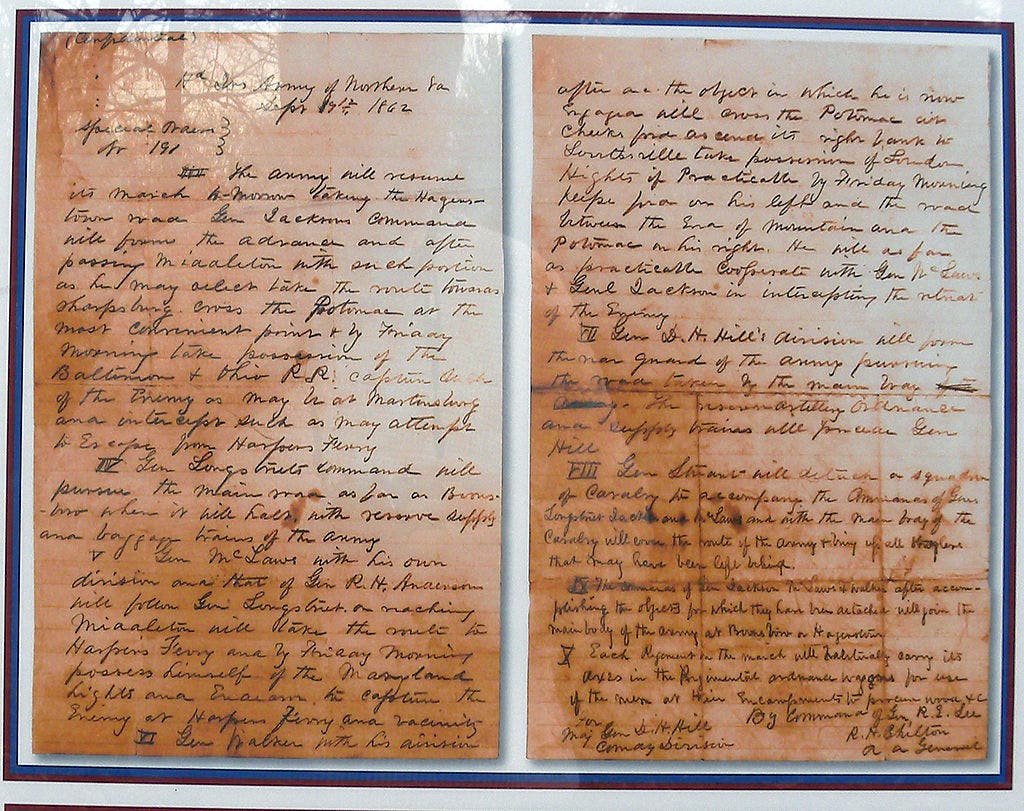 (Confidential)
Hd Qrs Army of Northern Va
Sept 9th 1862
Special Orders }
Nr 191 }
III The Army will resume
its march to-morrow taking the Hagers-
town road Gen Jacksons Command
will form the advance and after
passing Middleton with such portion
as he may select take the route towards
Sharpsburg cross the Potomac at the
most convenient point & by Friday
Morning take possession of the
Baltimore & Ohio R.R. capture such
of the Enemy as may be at Martinsburg
and intercept such as may attempt
to Escape from Harpers Ferry
IV Gen Longstreets command will
pursue the main road as far as Boons-
boro when it will halt, with reserve supply
and baggage trains of the army
V Gen McLaws with his own
division and that of Gen R. H. Anderson
will follow Gen Longstreet. on reaching
Middleton will take the route to
Harpers Ferry and by Friday Morning
possess himself of the Maryland
Hights and Endeavor to capture the
Enemy at Harpers Ferry and vacinity
VI Gen Walker with his division
after acc the object in which he is now
Engaged will cross the Potomac at
Cheeks ford ascend its right bank to
Lovettsville take possession of Loudon
Hights if Practicable by Friday Morning
Keeps ford on his left and the road
between the End of Mountain and the
Potomac on his right. He will as far
as practicable Cooperate with Gen McLaws
& Genl Jackson in intercepting the retreat
of the Enemy
VII Gen D. H. Hill's division will form
the rear guard of the army pursuing
the road taken by the main body
The reserve artillery Ordnance
and supply trains will precede Gen
Hill
VIII Gen Stuart will detach a squadron
of Cavalry to accompany the Commands of Gens
Longstreet Jackson and McLaws and with the main body of the
Cavalry will cover the route of the Army & bring up all stragglers
that may have been left behind.
IX The commands of Gen Jackson McLaws & Walker after accom-
plishing the objects for which they have been detached will join the
main body of the army at Boonsboro or Hagerstown
X Each Regiment on the march will habitually carry its
axes in the Regimental ordnance waggons for use
of the men at their Encampments to procure wood &c
By Command of Gen R. E. Lee
For
Maj Gen D. H. Hill
R. H. Chilton
Comdg Division
A A General